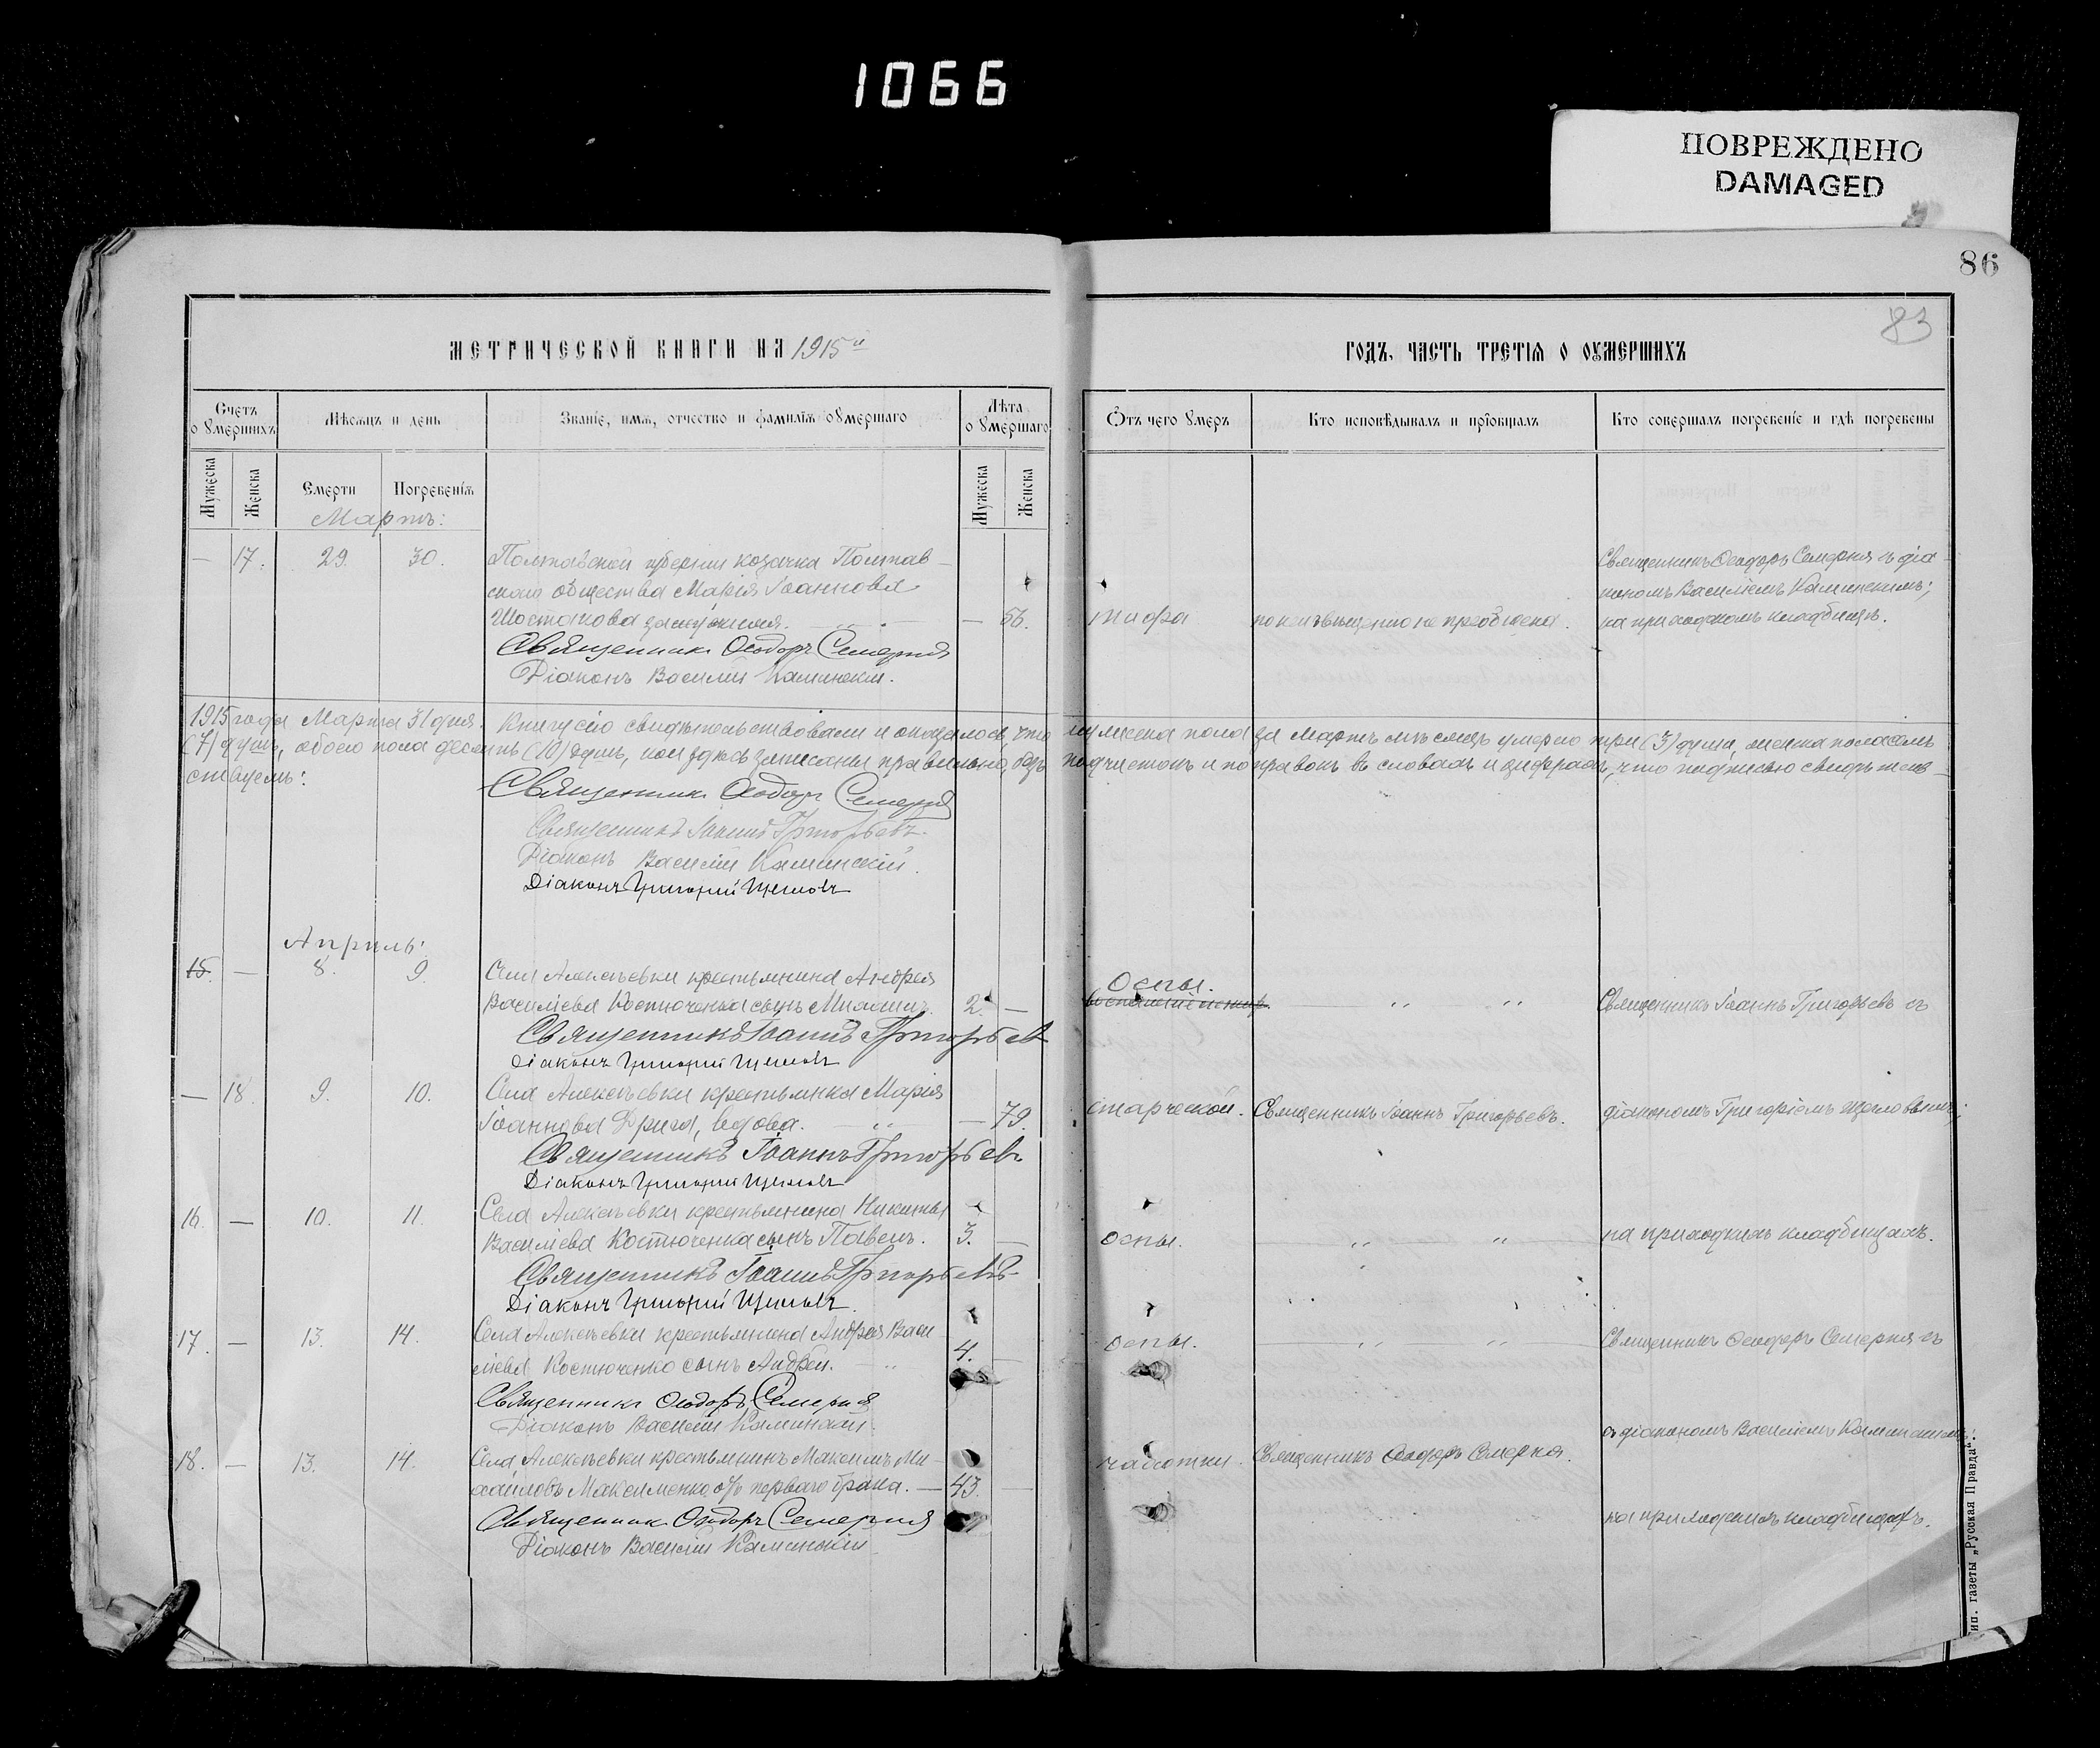 1066
ПОВРЕЖДЕНО
DAMAGED
86
83
МЕТРИЧЕСКОЙ КНИГИ НА 1915й
ГОДЪ, ЧАСТЬ ТРЕТІЯ О ОУМЕРШИХЪ
Счетъ о Умершихъ
Мѣсяцъ и день
Званіе, имя, отчество и фамилія оУмершаго
Лѣта оУмершаго
Отъ чего Умеръ
Кто исповѣдывалъ и пріобщалъ
Кто совершалъ погребеніе и гдѣ погребены
Мужеска
Женска
Смерти
Погребенія
Мужеска
Женска
Мартъ:
— 17. 29. 30. Полтавской губерніи козачка Полтав-
скаго общества Марія Іоаннова
Шостакова замужняя. — 56. тифа по неизвѣщенію не пріобщена.
Священникъ Ѳеодоръ Семерня съ діа-
кономъ Василіемъ Каминскимъ;
на приходскомъ кладбищѣ.
Священникъ Ѳеодоръ Семерня
Діаконъ Василій Каминскій.
1915 года Марта 31 дня. Книгу сію свидѣтельствовали и оказалось, что мужеска пола за Мартъ мѣсяцъ умерло три (3) души, женска пола семь
(7) душъ, обоего пола десять (10) душъ, кои здѣсь записаны правильно, безъ подчистокъ и поправокъ въ словахъ и цифрахъ, что подписью свидѣтель-
ствуемъ:
Священникъ Ѳеодоръ Семерня
Священникъ Іоаннъ Григорьевъ.
Діаконъ Василій Каминскій.
Діаконъ Григорій Щегловъ
Апрѣль:
15. — 8. 9. Села Алексѣевки крестьянина Андрея
Оспы.
Василіева Костюченка сынъ Михаилъ. 2. — ,, ,, Священникъ Іоаннъ Григорьевъ съ
Священникъ Іоаннъ Григорьевъ
Діаконъ Григорій Щегловъ
— 18. 9. 10. Села Алексѣевки крестьянка Марія
Іоаннова Дрига, вдова. — 79. старческой. Священникъ Іоаннъ Григорьевъ. діакономъ Григоріемъ Щегловымъ;
Священникъ Іоаннъ Григорьевъ
Діаконъ Григорій Щегловъ
16. — 10. 11. Села Алексѣевки крестьянина Никиты
Василіева Костюченка сынъ Павелъ. 3. — оспы. ,, ,, на приходскихъ кладбищахъ.
Священникъ Іоаннъ Григорьевъ
Діаконъ Григорій Щегловъ.
17. — 13. 14. Села Алексѣевки крестьянина Андрея Васи-
ліева Костюченко сынъ Андрей. 4. — оспы. ,, ,, Священникъ Ѳеодоръ Семерня съ
Священникъ Ѳеодоръ Семерня
Діаконъ Василій Каминскій.
діакономъ Василіемъ Каминскимъ
18. — 13. 14. Села Алексѣевки крестьянинъ Максимъ Ми-
хаиловъ Максименко, отъ перваго брака. — 43. — чахотки. Священникъ Ѳеодоръ Семерня.
Священникъ Ѳеодоръ Семерня
на приходскихъ кладбищахъ.
Діаконъ Василій Каминскій
Тип. газеты „Русская Правда“.